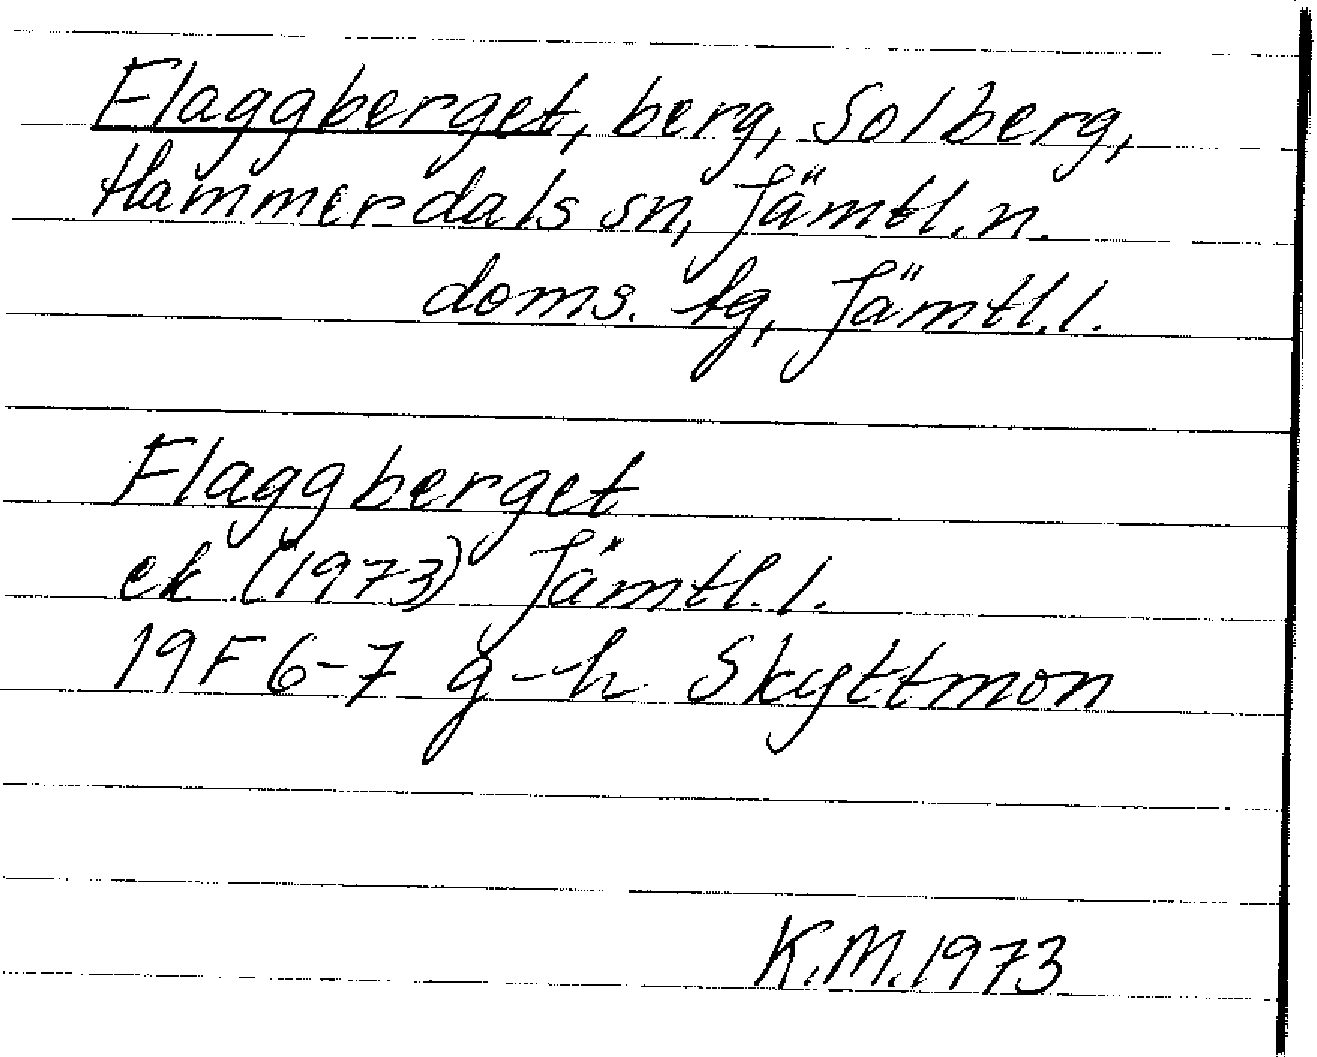 Flaggberget, berg, Solberg,
Hammerdals sn, Jämtl. n.
doms. tg, Jämtl. l.
Flaggberget
ek (1973) Jämtl. l.
19F 6-7 g-h Skyttmon
K.M. 1973